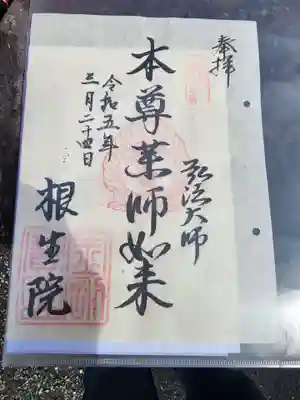 奉拝
弘法大師
本尊薬師如来
令和五年
三月二十四日
根生院